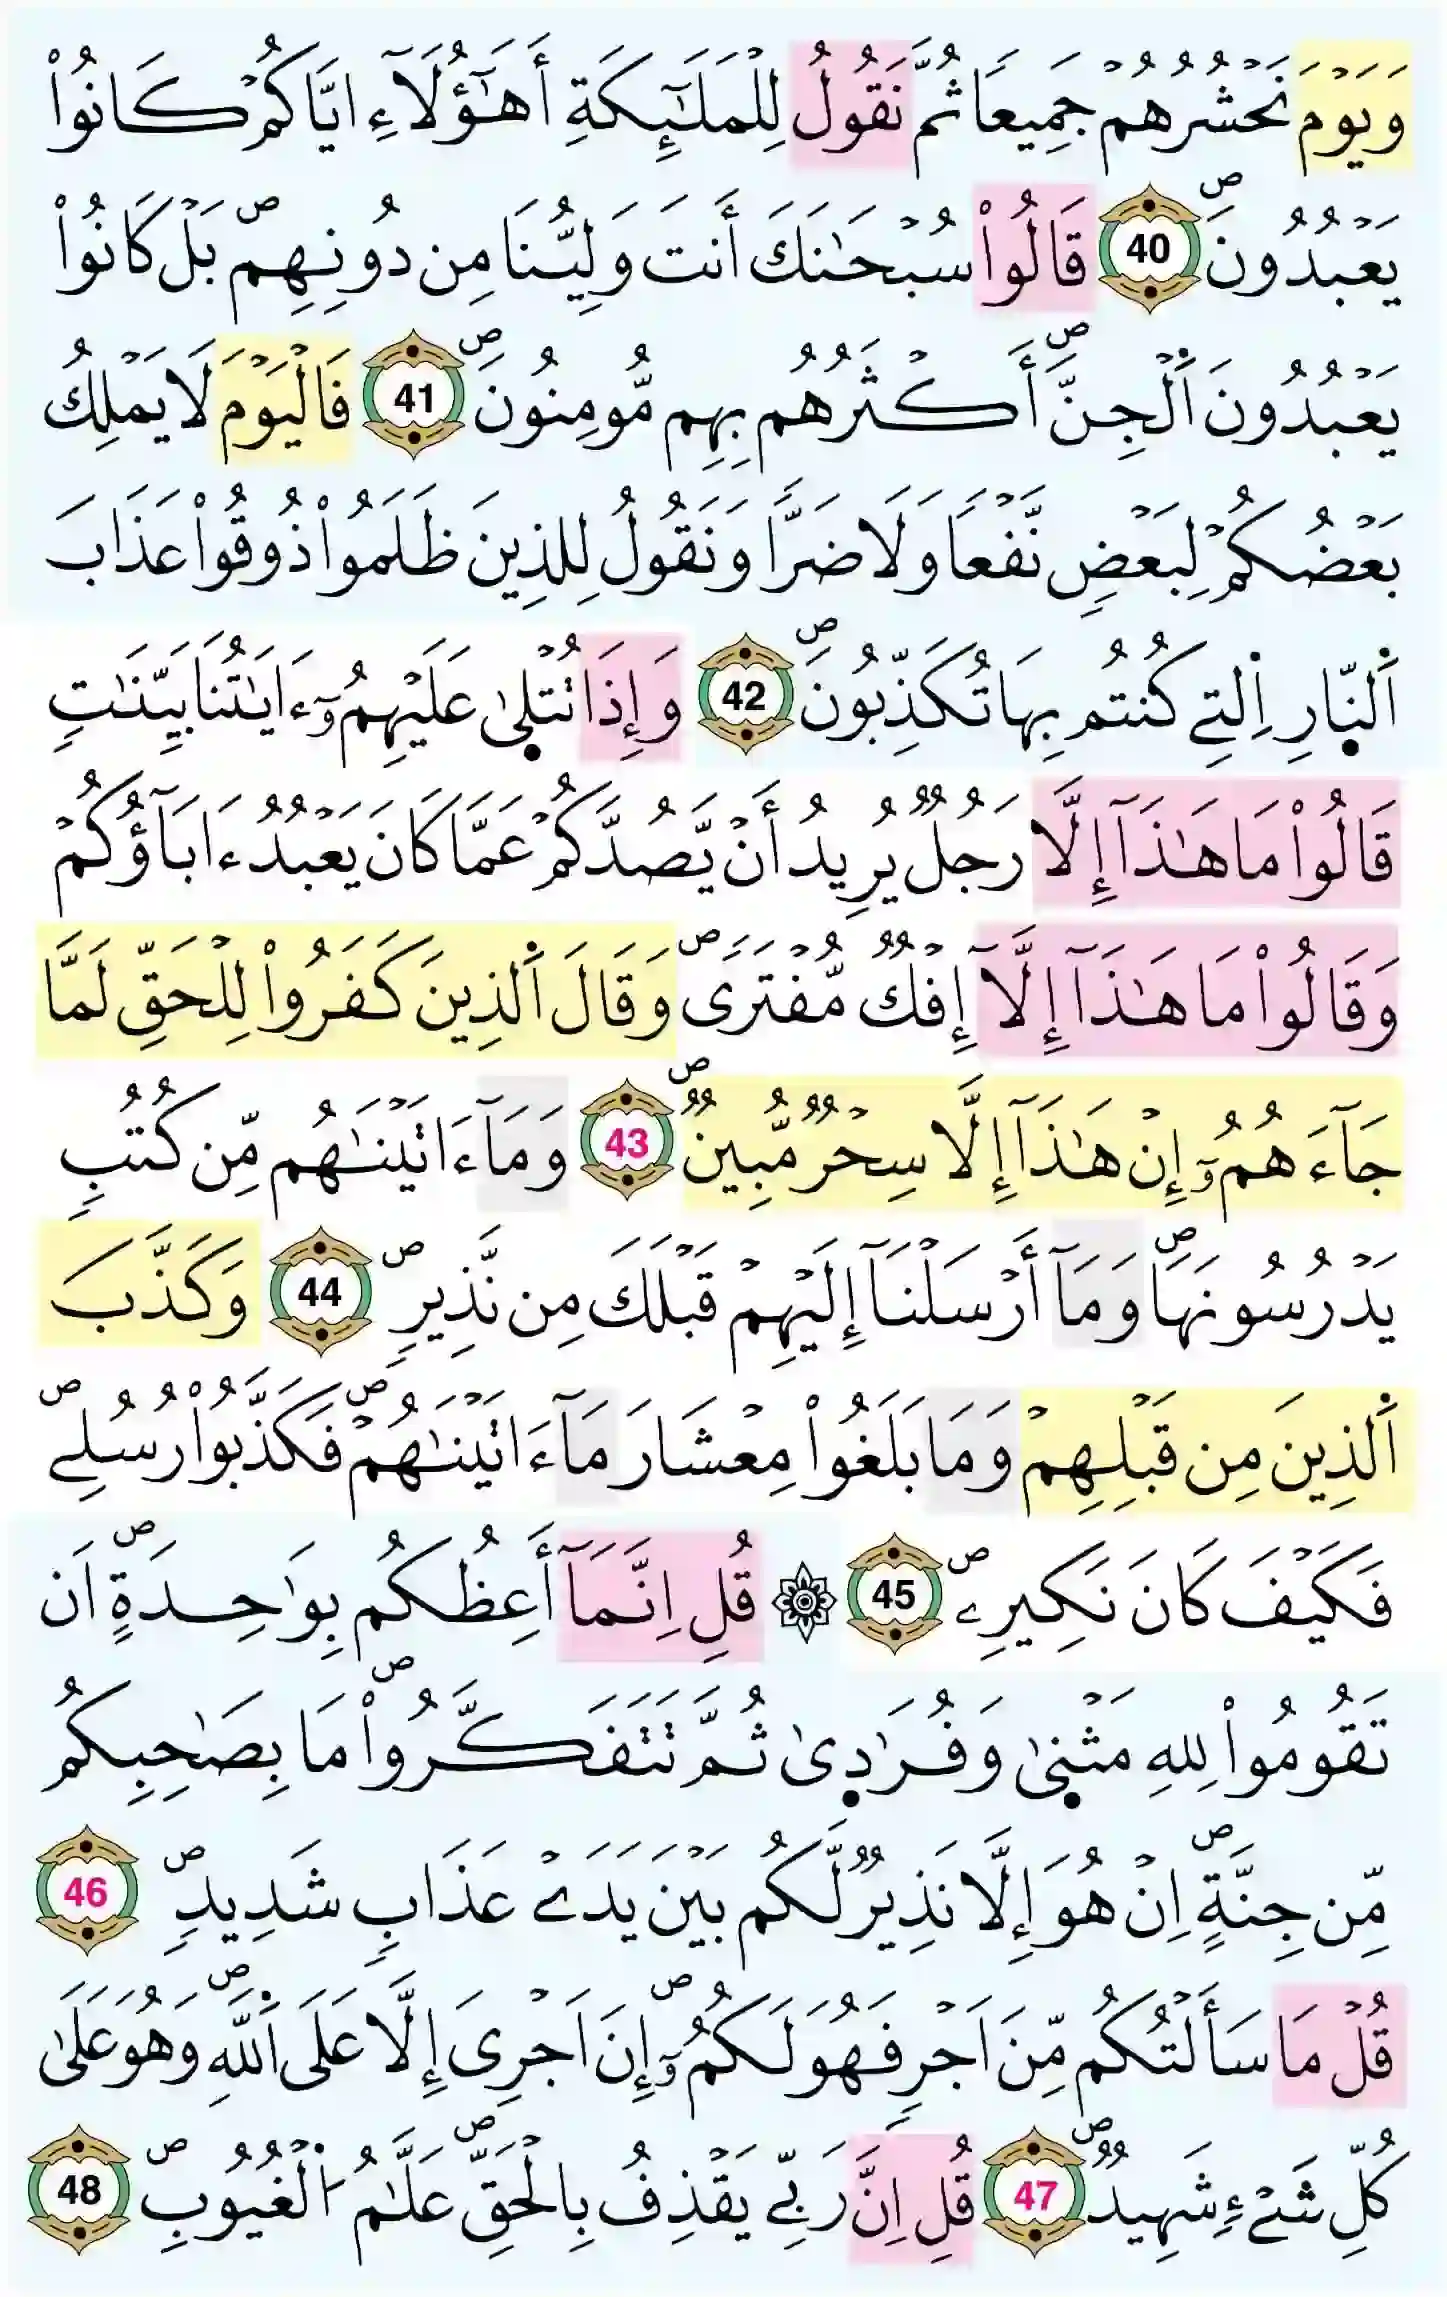 وَيَوْمَ نَحْشُرُهُمْ جَمِيعاً ثُمَّ نَقُولُ لِلْمَلَٰٓئِكَةِ أَهَٰٓؤُلَآءِ ايَّاكُمْ كَانُواْ
يَعْبُدُونَۖ 40 قَالُواْ سُبْحَٰنَكَ أَنتَ وَلِيُّنَا مِن دُونِهِمۖ بَلْ كَانُواْ
يَعْبُدُونَ اَ۬لْجِنَّۖ أَكْثَرُهُم بِهِم مُّومِنُونَۖ 41 فَالْيَوْمَ لَا يَمْلِكُ
بَعْضُكُمْ لِبَعْضٍ نَّفْعاً وَلَا ضَرّاً وَنَقُولُ لِلذِينَ ظَلَمُواْ ذُوقُواْ عَذَابَ
اَ۬لنّ۪ارِ اِ۬لتِے كُنتُم بِهَا تُكَذِّبُونَۖ 42 وَإِذَا تُتْل۪ىٰ عَلَيْهِمُۥٓ ءَايَٰتُنَا بَيِّنَٰتٖ
قَالُواْ مَا هَٰذَآ إِلَّا رَجُلٞ يُرِيدُ أَنْ يَّصُدَّكُمْ عَمَّا كَانَ يَعْبُدُ ءَابَآؤُكُمْ
وَقَالُواْ مَا هَٰذَآ إِلَّآ إِفْكٞ مُّفْتَرىٗۖ وَقَالَ اَ۬لذِينَ كَفَرُواْ لِلْحَقِّ لَمَّا
جَآءَهُمُۥٓ إِنْ هَٰذَآ إِلَّا سِحْرٞ مُّبِينٞۖ 43 وَمَآ ءَاتَيْنَٰهُم مِّن كُتُبٖ
يَدْرُسُونَهَاۖ وَمَآ أَرْسَلْنَآ إِلَيْهِمْ قَبْلَكَ مِن نَّذِيرٖۖ 44 وَكَذَّبَ
اَ۬لذِينَ مِن قَبْلِهِمْ وَمَا بَلَغُواْ مِعْشَارَ مَآ ءَاتَيْنَٰهُمْۖ فَكَذَّبُواْ رُسُلِےۖ
فَكَيْفَ كَانَ نَكِيرِۦۖ 45 ۞ قُلِ اِنَّمَآ أَعِظُكُم بِوَٰحِدَةٍۖ اَن
تَقُومُواْ لِلهِ مَثْن۪ىٰ وَفُرَٰد۪ىٰ ثُمَّ تَتَفَكَّرُواْۖ مَا بِصَٰحِبِكُم
مِّن جِنَّةٍۖ اِنْ هُوَ إِلَّا نَذِيرٞ لَّكُم بَيْنَ يَدَےْ عَذَابٖ شَدِيدٖۖ 46
قُلْ مَا سَأَلْتُكُم مِّنَ اَجْرٖ فَهُوَ لَكُمُۥٓۖ إِنَ اَجْرِيَ إِلَّا عَلَى اَ۬للَّهِۖ وَهُوَ عَلَىٰ
كُلِّ شَےْءٖ شَهِيدٞۖ 47 قُلِ اِنَّ رَبِّے يَقْذِفُ بِالْحَقِّۖ عَلَّٰمُ اُ۬لْغُيُوبِۖ 48